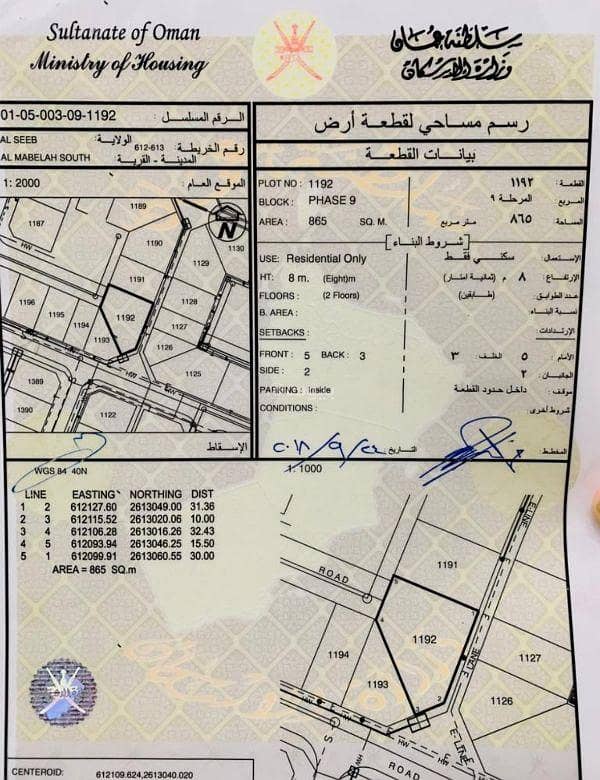 Sultanate of Oman
Ministry of Housing
سلطنة عمان
وزارة الإسكان
01-05-003-09-1192 الرقم المسلسل :
AL SEEB الولاية:
612-613 رقم الخريطة :
AL MABELAH SOUTH المدينة - القرية :
1: 2000 الموقع العام :
رسم مساحي لقطعة أرض
بيانات القطعة
PLOT NO : 1192 ١١٩٢ القطعة :
BLOCK: PHASE 9 المرحلة ٩ المربع :
AREA : 865 SQ. M. متر مربع ٨٦٥ المساحة :
شروط البناء
USE: Residential Only سكني فقط الإستعمال:
HT: 8 m. (Eight)m ٨ م (ثمانية امتار) الإرتفاع :
FLOORS : (2 Floors) (طابقين) عدد الطوابق:
B. AREA : نسبة البناء:
SETBACKS : الإرتدادات:
FRONT : 5 BACK : 3 ٣ الخلف : ٥ الأمام :
SIDE : 2 ٢ الجانبان :
PARKING : Inside داخل حدود القطعة موقف :
CONDITIONS : شروط أخرى :
التاريخ : المخطط :
1189
1187
1190
1130
N
HW
1129
1191
1196
1195
1194
1192
1128
1193
1127
HW
1126
1125
1389
1390
1122
الإسقاط:
WGS 84 40N
1: 1000
LINE EASTING NORTHING DIST
1 2 612127.60 2613049.00 31.36
2 3 612115.52 2613020.06 10.00
3 4 612106.28 2613016.26 32.43
4 5 612093.94 2613046.25 15.50
5 1 612099.91 2613060.55 30.00
AREA = 865 SQ.m
E-LINE
1191
ROAD
1192
1194
1193
1127
1126
3 LANE
E-LINE
HW
HW
HW
ROAD
CENTEROID: 612109.624,2613040.020